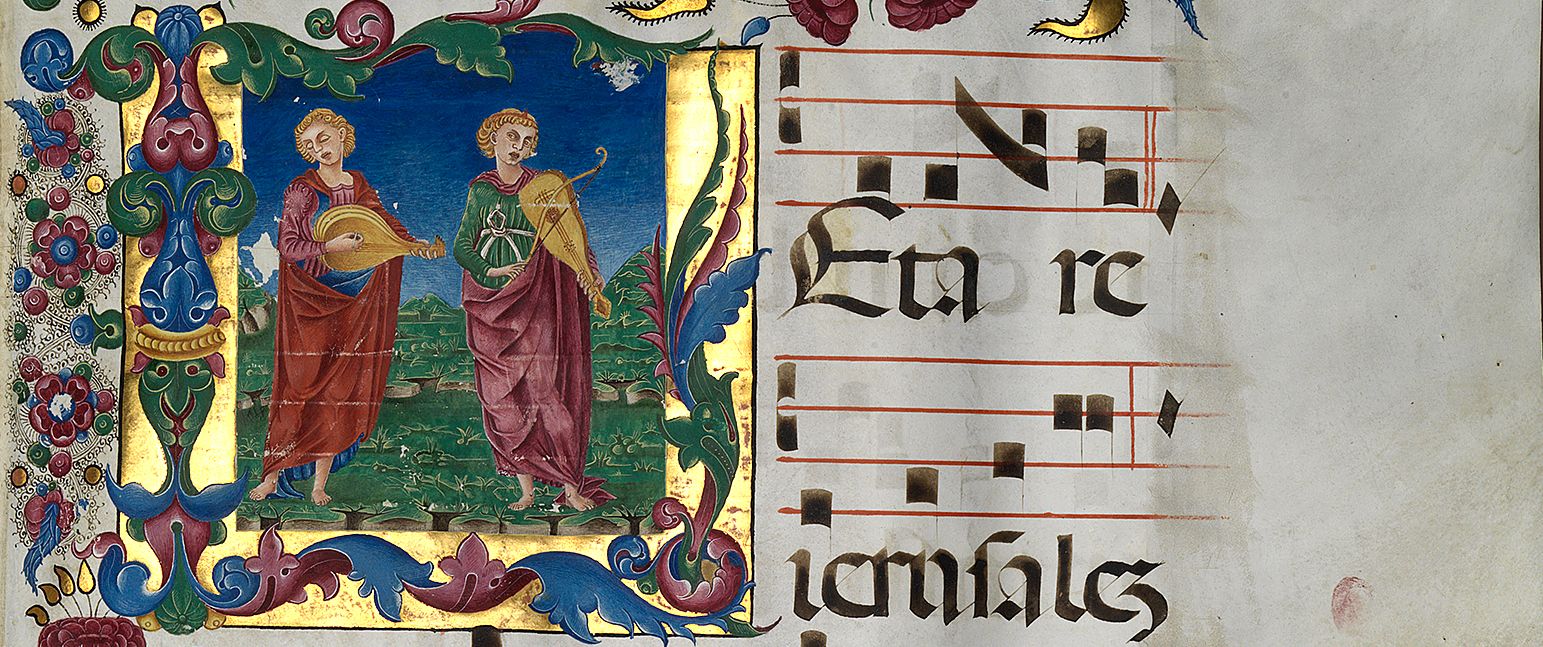 LEta re
ieruſalez